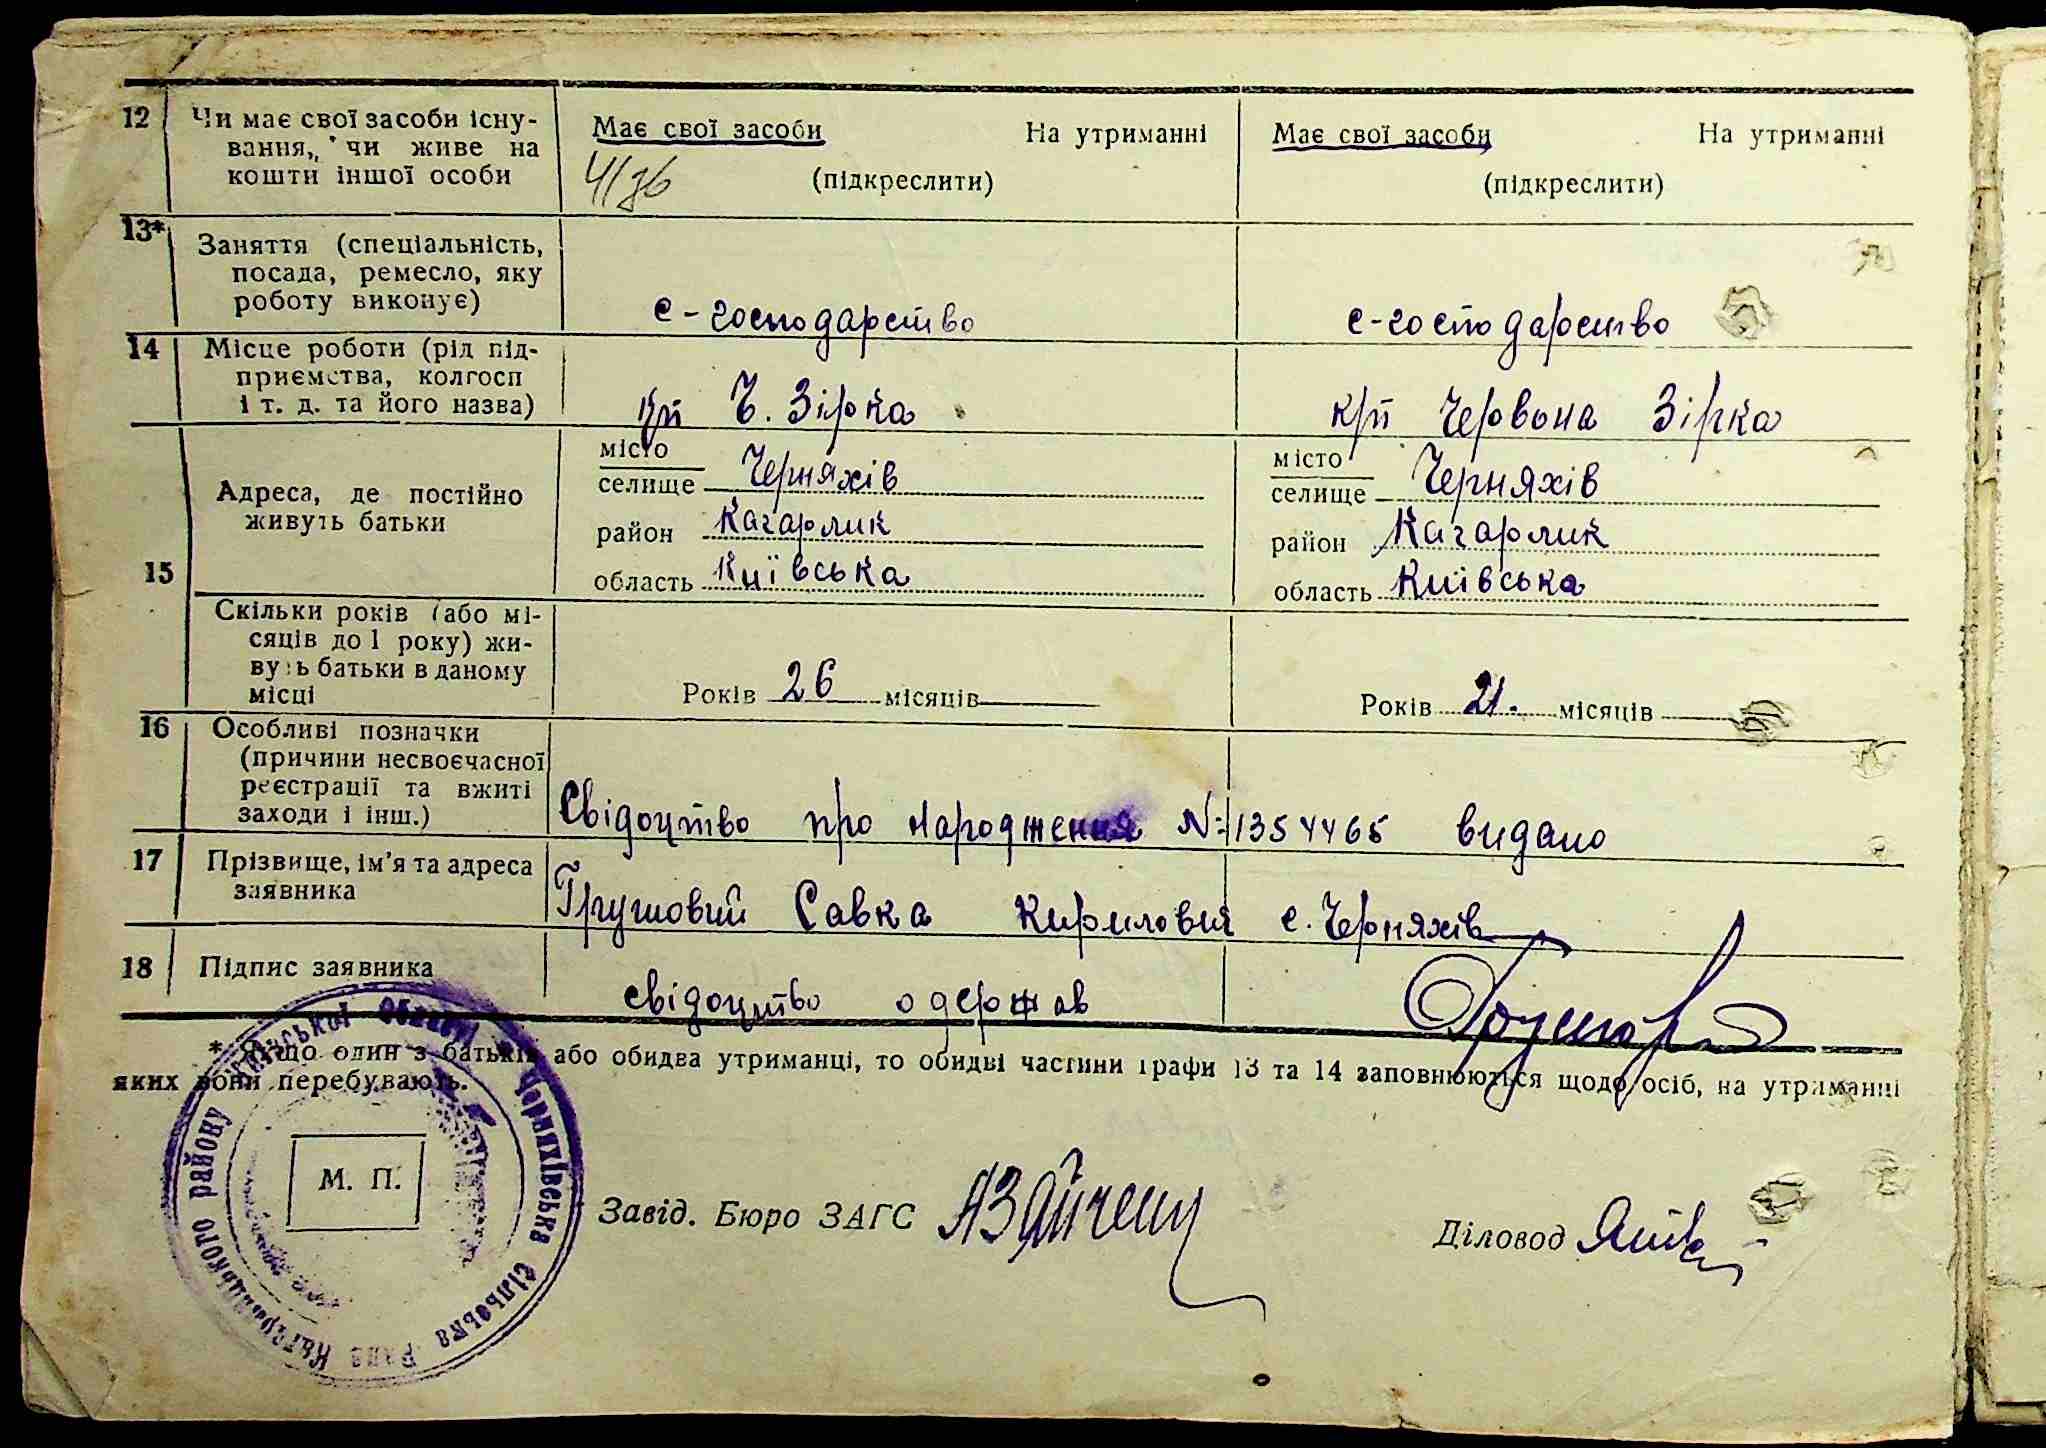 12 Чи має свої засоби існу-
вання, чи живе на
кошти іншої особи
Має свої засоби На утриманні
(підкреслити)
Має свої засоби На утриманні
(підкреслити)
13* Заняття (спеціальність,
посада, ремесло, яку
роботу виконує)
с-господарство
с-господарство
14 Місце роботи (рід під-
приємства, колгосп
і т. д. та його назва)
Ч. Зірка
Червона Зірка
15 Адреса, де постійно
живуть батьки
місто
селище Черняхів
район Кагарлик
область Київська
місто
селище Черняхів
район Кагарлик
область Київська
Скільки років (або мі-
сяців до 1 року) жи-
вуть батьки в даному
місці
Років 26 місяців
Років 21. місяців
16 Особливі позначки
(причини несвоєчасної
реєстрації та вжиті
заходи і інш.)
Свідоцтво про народження № 1354465 видано
17 Прізвище, ім'я та адреса
заявника
Грушовий Савка Кирилович с. Черняхів
18 Підпис заявника
свідоцтво одержав
* Якщо один з батьків або обидва утриманці, то обидві частини графи 13 та 14 заповнюються щодо осіб, на утриманні
яких вони перебувають.
Черняхівська Сільська Рада Кагарлицького району Київської Області
М. П.
Завід. Бюро ЗАГС
Діловод